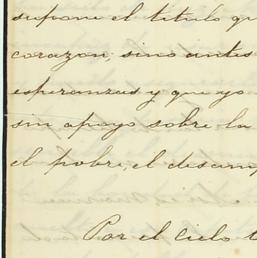 supone el titulo qu
corazon; sino antes
esperanzas y que yo
sin apoyo sobre la
el pobre, el desam
Por el cielo t